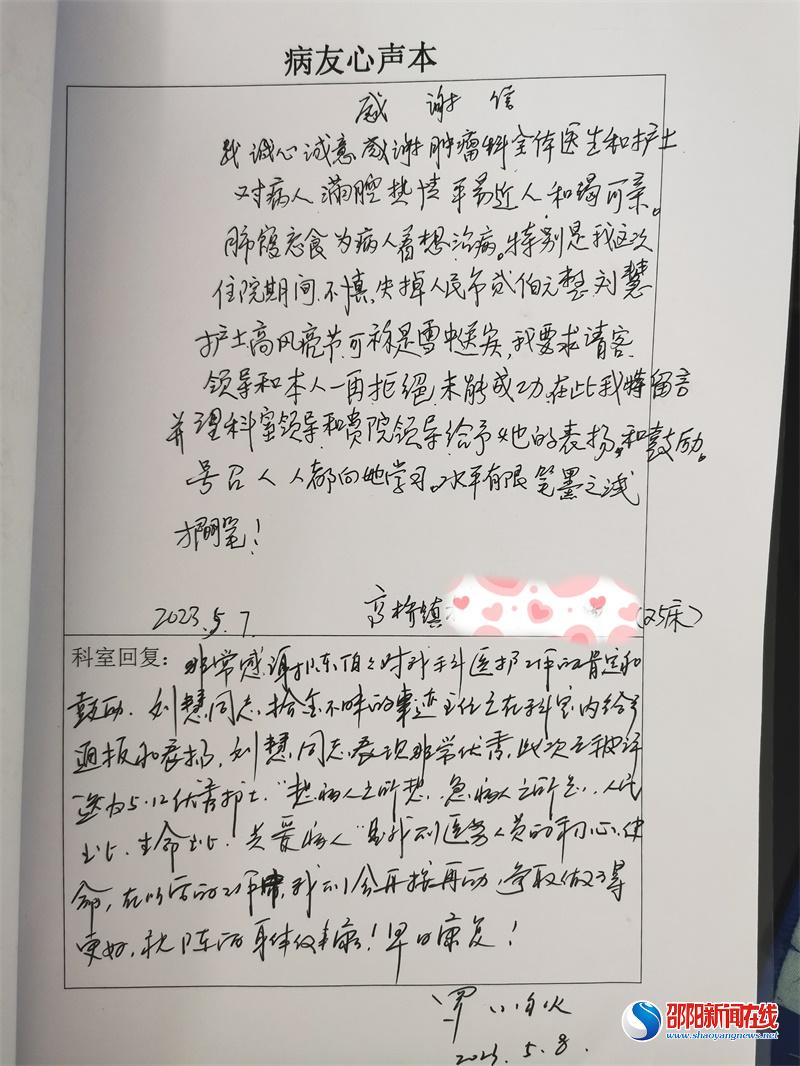 病友心声本
感谢信
我诚心诚意感谢肿瘤科全体医生和护士
对病人满腔热情平易近人和蔼可亲。
肺馆忘食为病人着想治病。特别是我这次
住院期间不慎,失掉人民币贰佰元整.刘慧
护士高风亮节可称是雪中送炭,我要求请客
领导和本人一再拒绝未能成功.在此我特留言
并理科室领导和贵院领导给予她的表扬和鼓励。
号召人人都向她学习。水平有限笔墨之浅
才搁笔!
2023.5.7 高桥镇 (25床)
科室回复: 非常感谢陈伯伯对我科医护工作的肯定和
鼓励.刘慧同志拾金不昧的事迹主任已在科室内给予
通报和表扬,刘慧同志表现非常优秀,此次已被评
选为5.12优秀护士."想病人之所想.急病人之所急.人民
至上.生命至上.关爱病人"是我们医务人员的初心使
命,在以后的工作中,我们会再接再励,争取做得
更好,祝陈伯身体健康!早日康复!
罗
2023.5.8.
邵阳新闻在线
www.shaoyangnews.net